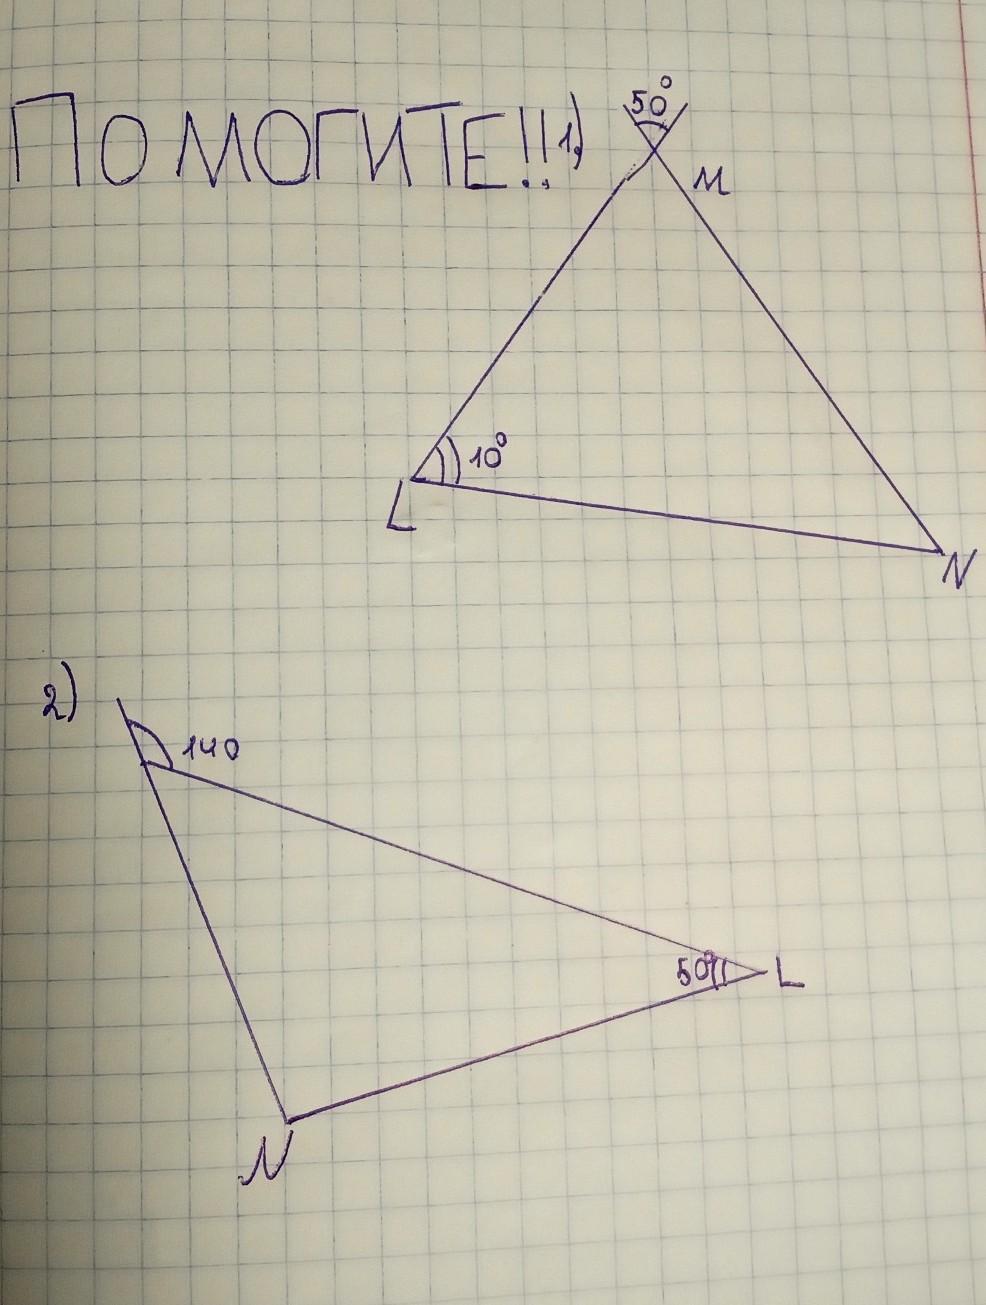 ПОМОГИТЕ!!!
1)
50°
M
10°
L
N
2)
140
50°
L
N